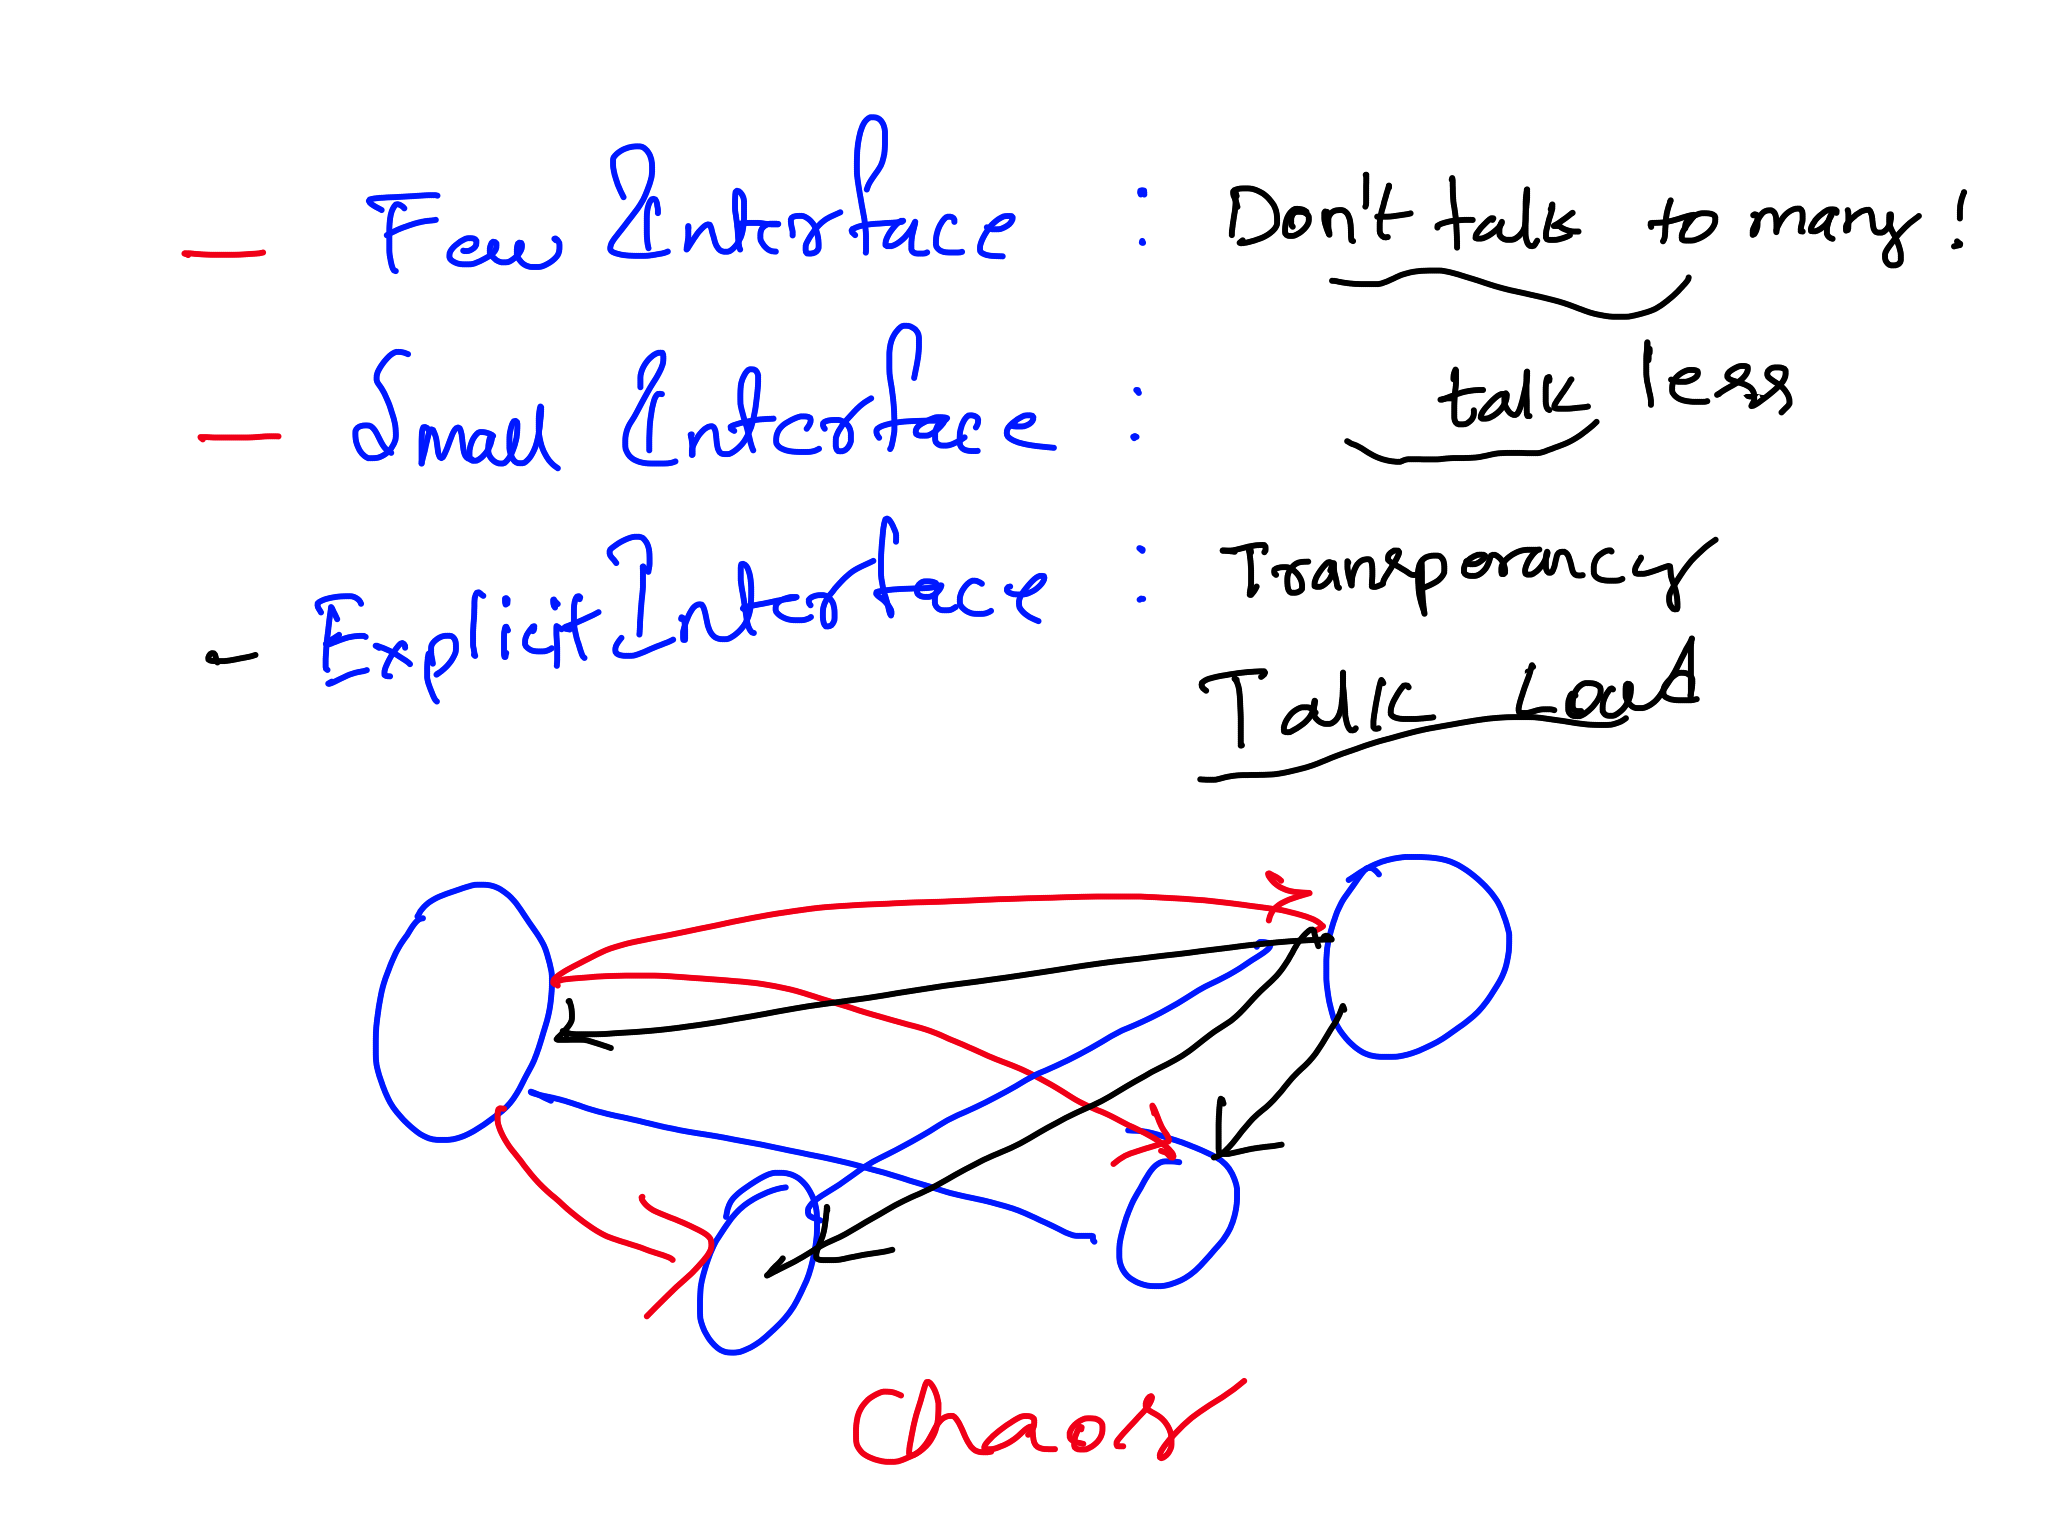 — Few Interface : Don't talk to many!
— Small Interface : talk less
- Explicit Interface : Transparancy
Talk Loud
Chaos